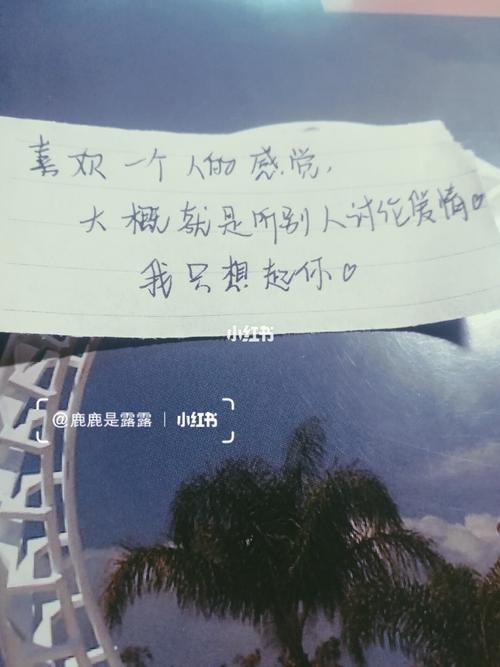 喜欢一个人的感觉,
大概就是听别人讨论爱情♡
我只想起你♡
小红书
@鹿鹿是露露 | 小红书